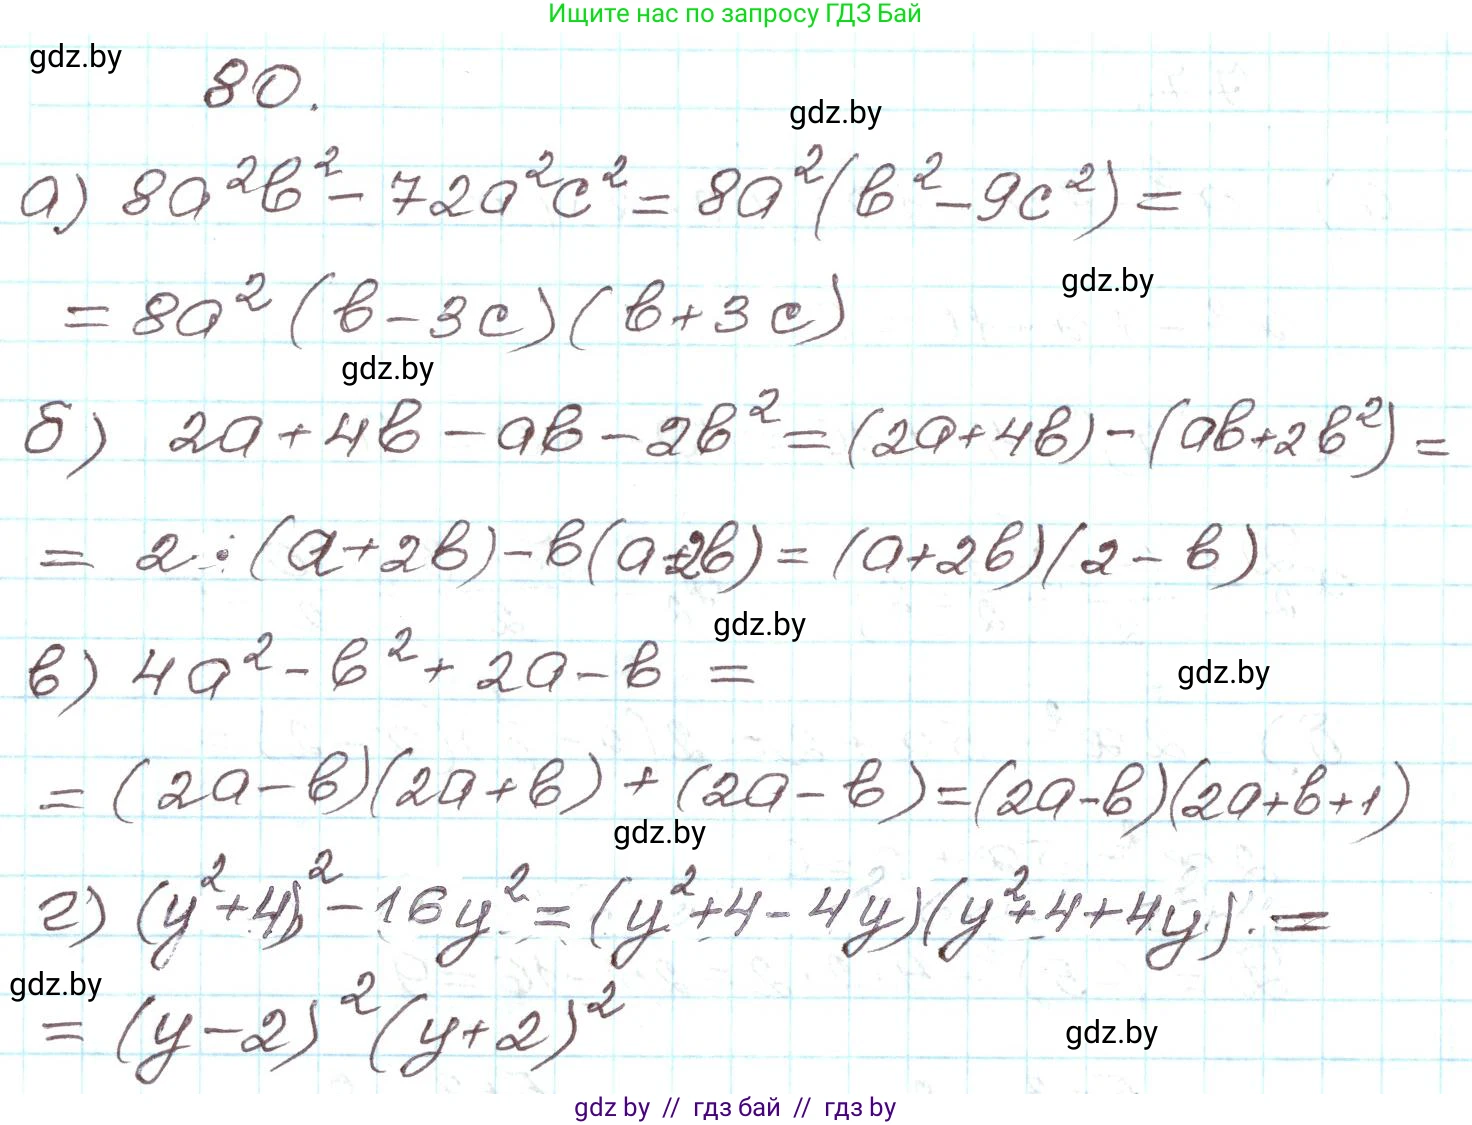 Ищите нас по запросу ГДЗ Бай
gdz.by
80.
gdz.by
а) 8a²b² - 72a²c² = 8a²(b² - 9c²) =
gdz.by
= 8a² (b - 3c) (b + 3c)
gdz.by
б) 2a + 4b - ab - 2b² = (2a + 4b) - (ab + 2b²) =
= 2 · (a + 2b) - b(a + 2b) = (a + 2b)(2 - b)
gdz.by
в) 4a² - b² + 2a - b =
gdz.by
= (2a - b)(2a + b) + (2a - b) = (2a - b)(2a + b + 1)
gdz.by
г) (y² + 4)² - 16y² = (y² + 4 - 4y)(y² + 4 + 4y) =
gdz.by
= (y - 2)² (y + 2)²
gdz.by
gdz by // гдз бай // гдз by